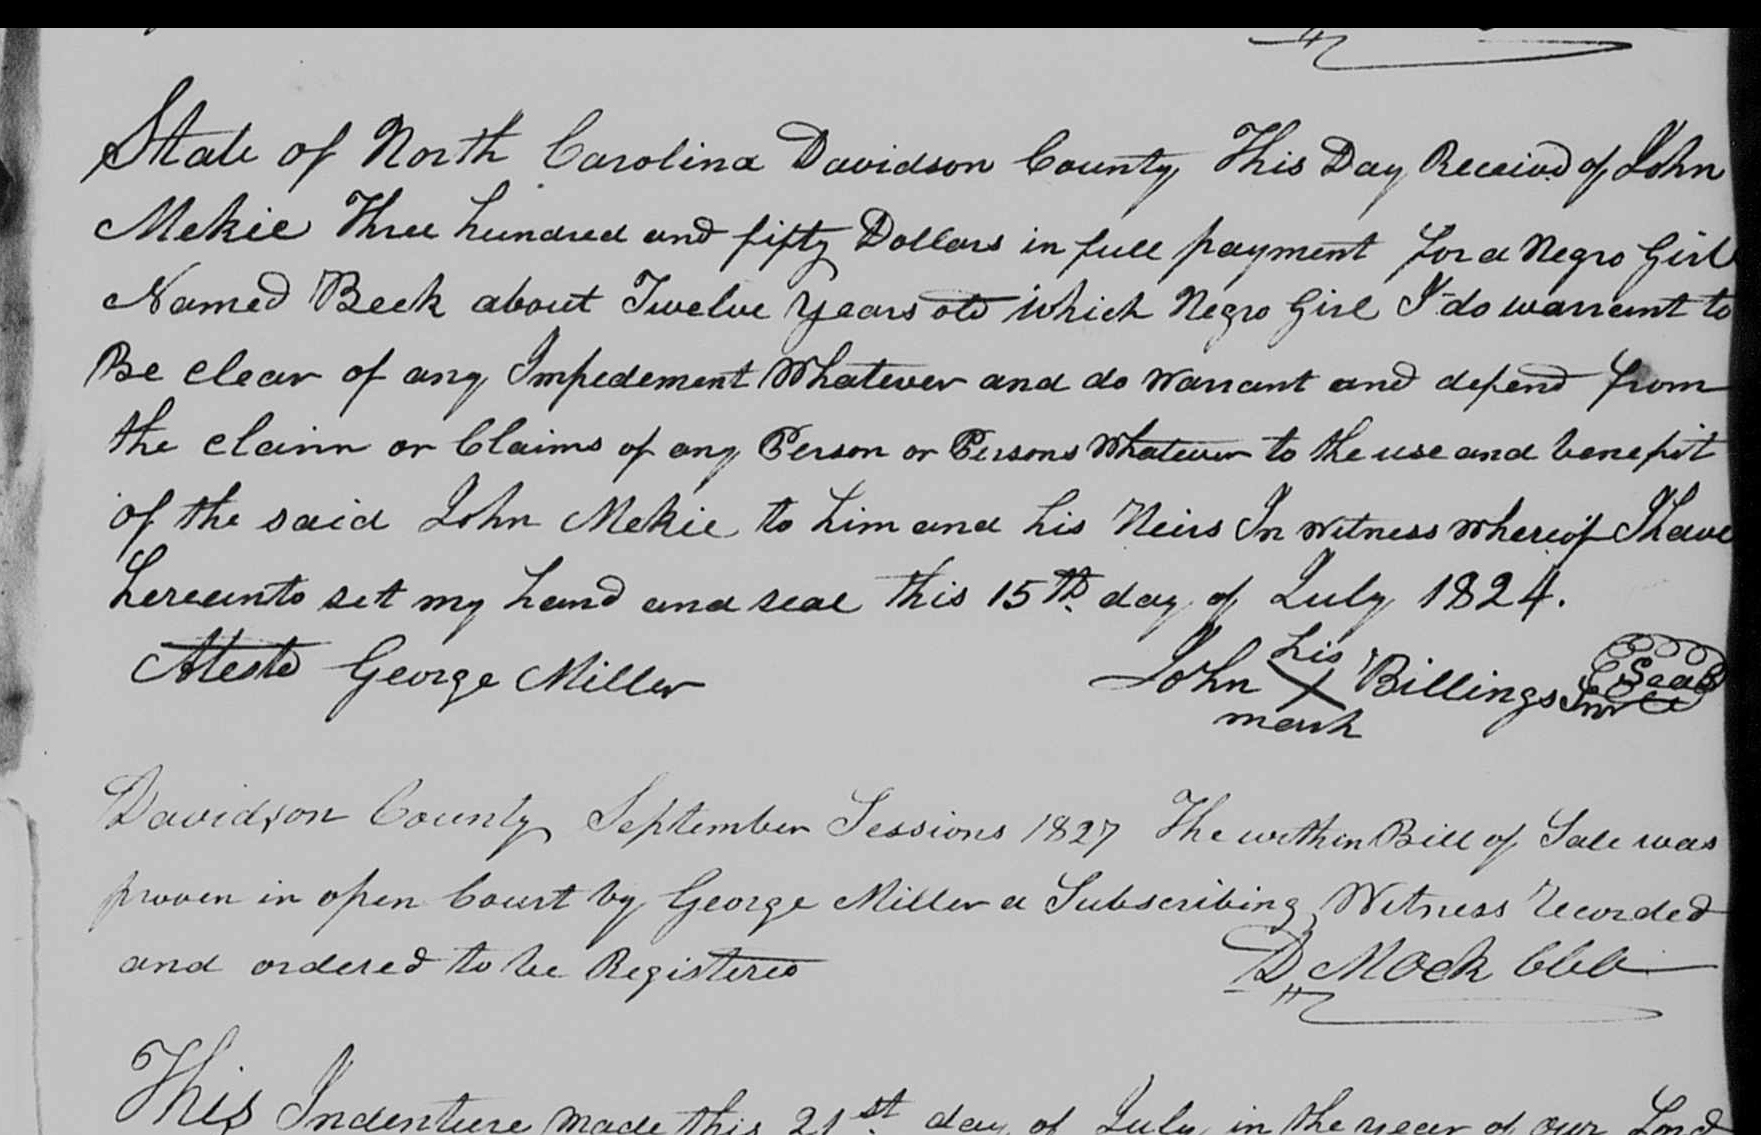 State of North Carolina Davidson County This Day Received of John
Mekie Three hundred and fifty Dollars in full payment for a Negro Girl
Named Beck about Twelve Years old which Negro Girl I do warrant to
Be clear of any Impedement Whatever and do Warrant and defend from
the claim or Claims of any Person or Persons Whatever to the use and benefit
of the said John Mekie to him and his Heirs In Witness Whereof I have
hereunto set my hand and seal this 15th day of July 1824.
Atests George Miller
John his X mark Billings Jnr Seal
Davidson County September Sessions 1827 The within Bill of Sale was
proven in open Court by George Miller a Subscribing Witness recorded
and ordered to be Registered
D Mock CCC
This Indenture made this 21st day of July in the year of our Lord